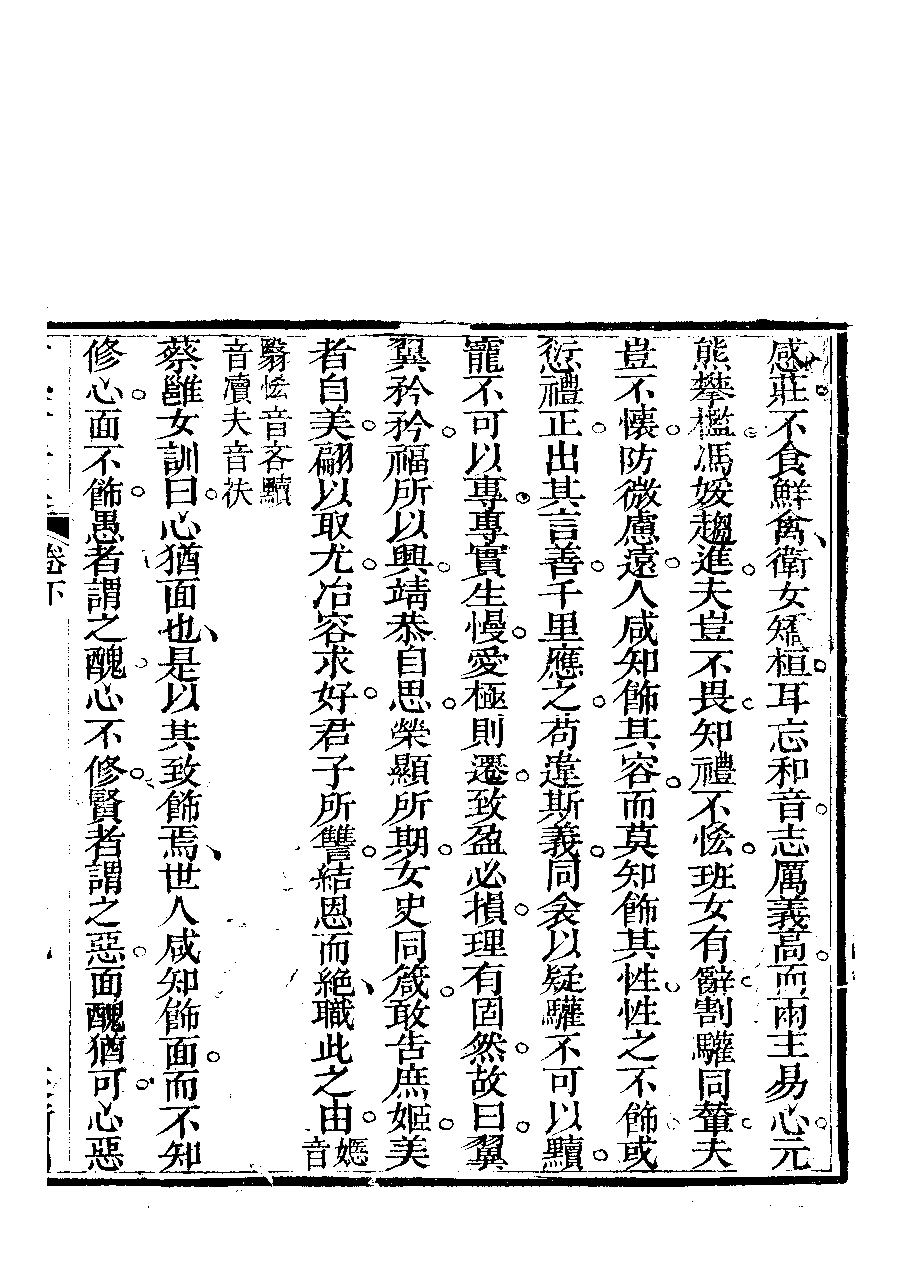 感莊不食鮮禽衛女矯桓耳忘和音志厲義高而兩主易心元
熊攀檻馮媛趨進夫豈不畏知禮不恡班女有辭割驩同輦夫
豈不懐防微慮遠人咸知飾其容而莫知飾其性性之不飾或
愆禮正出其言善千里應之苟違斯義同衾以疑驩不可以黷
寵不可以専専實生慢愛極則遷致盈必損理有固然故曰翼
翼矜矜福所以興靖恭自思榮顯所期女史同箴敢告庶姬美
者自美翩以取尤冶容求好君子所讐結恩而絶職此之由嫕音
翳恡音吝黷
音瀆夫音扶
蔡邕女訓曰心猶面也是以其致飾焉世人咸知飾面而不知
修心面不飾愚者謂之醜心不修賢者謂之惡面醜猶可心惡
卷下